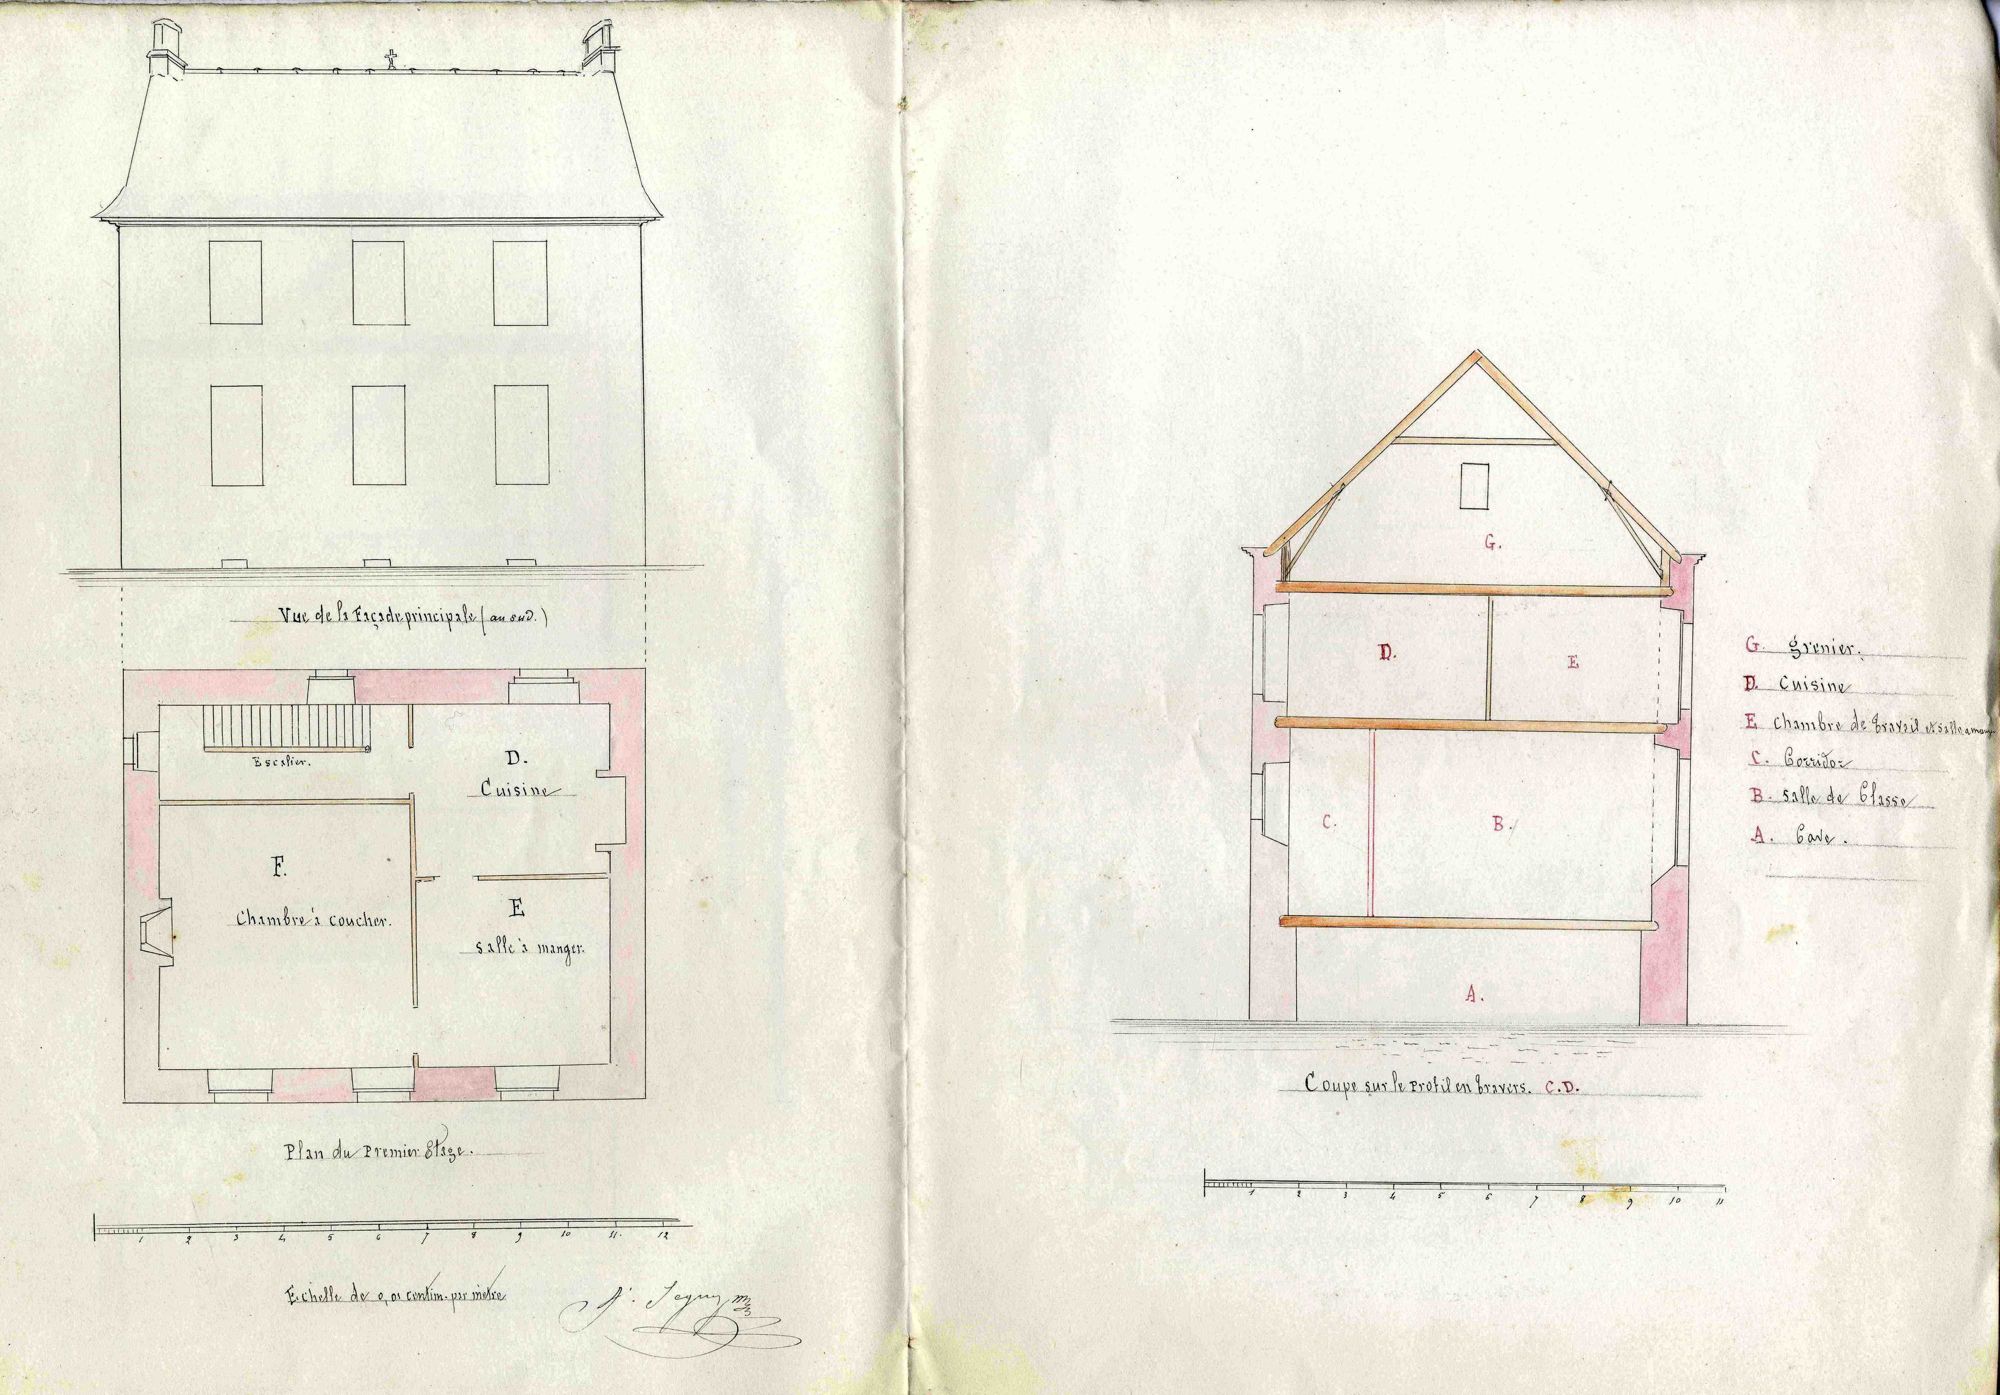 Vue de la Façade principale (au sud.)
Escalier.
D.
Cuisine
F.
Chambre à coucher.
E
salle à manger.
Plan du Premier Etage.
1 2 3 4 5 6 7 8 9 10 11. 12
Echelle de 0,01 centim. par mètre
G.
D.
E
C.
B.
A.
G. grenier.
D. Cuisine
E chambre de travail et salle a mang
C. Corridor
B. salle de Classe
A. Cave.
Coupe sur le Profil en travers. C.D.
1 2 3 4 5 6 7 8 9 10 11